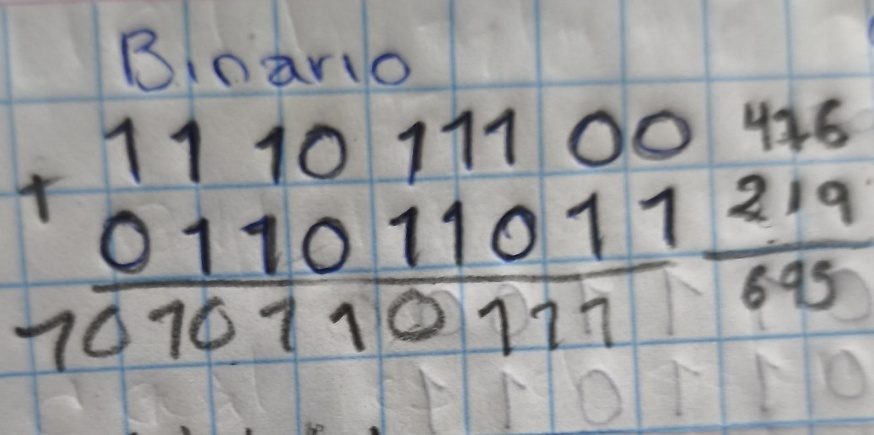 Binario
11 10 111 00 476
+ 0110 11011 219
1010110111 695